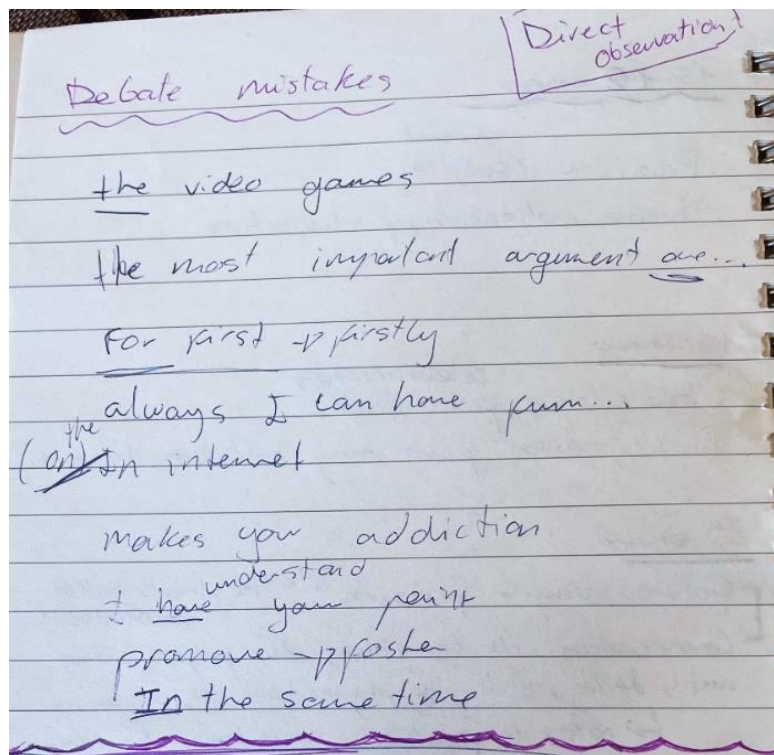 Direct
observation!
Debate mistakes
the video games
the most important argument are...
For first → firstly
always I can have funn...
the
(on) In internet
makes you addiction
understand
I have your point
promove → foster
In the same time